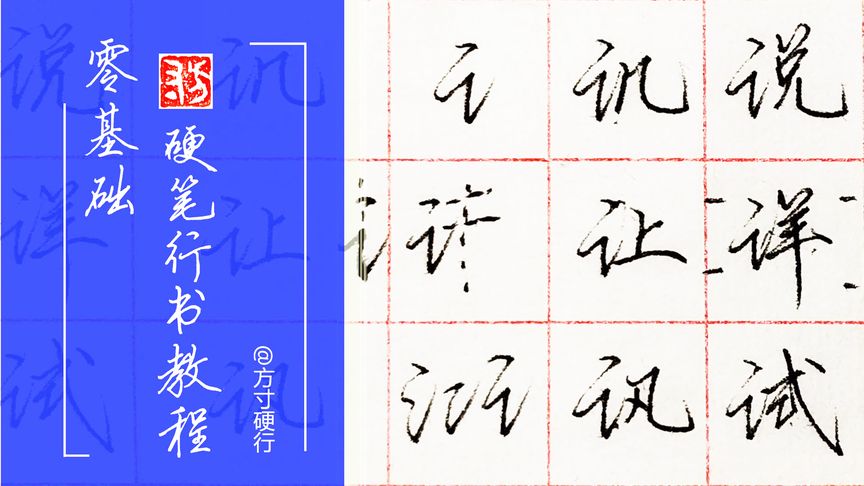 零基础
硬笔行书教程
@方寸硬行
讠 讥 说
让 详
氵讠 讯 试